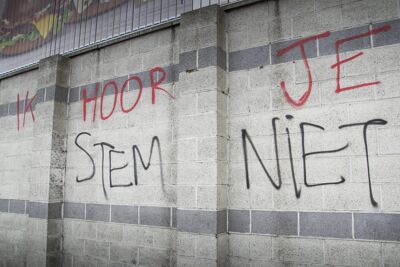 IK HOOR JE
STEM NiET